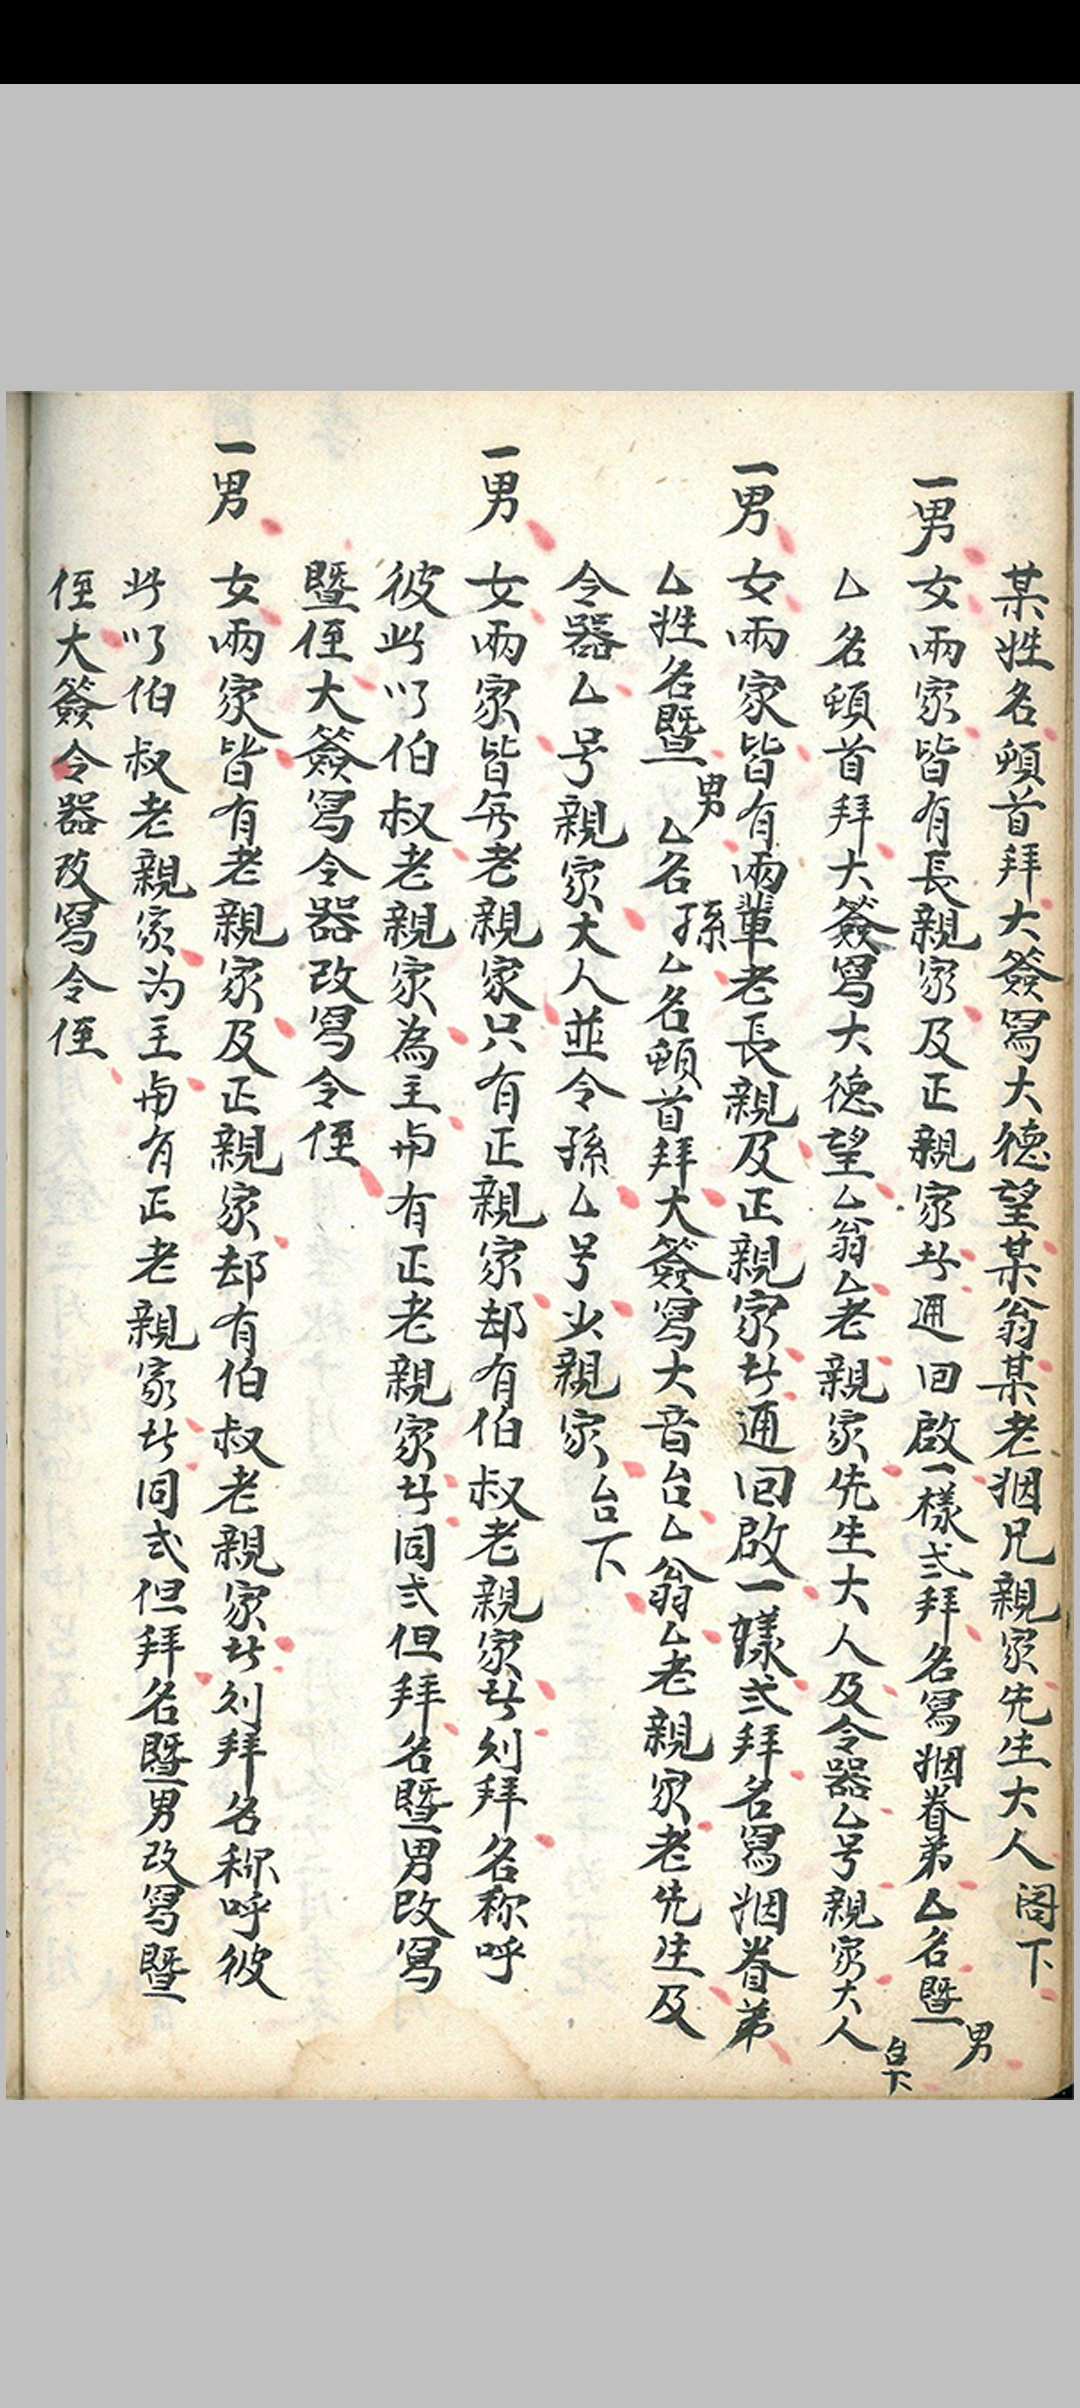 某姓名頓首拜大簽寫大德望某翁某老姻兄親家先生大人 閣下
一男女兩家皆有長親家及正親家者通回啟一樣式拜名寫姻眷弟厶名暨男
厶名頓首拜大簽寫大德望厶翁厶老親家先生大人及令器厶号親家大人
一男女兩家皆有兩輩老長親及正親家者通回啟一樣式拜名寫姻眷弟
厶姓名暨男厶名孫厶名頓首拜大簽寫大音台厶翁厶老親家老先生及
令器厶号親家大人並令孫厶号少親家 台下
一男女兩家皆無老親家只有正親家却有伯叔老親家者列拜名称呼
彼此以伯叔老親家為主與有正老親家者同式但拜名暨男改寫
暨侄大簽寫令器改寫令侄
一男女兩家皆有老親家及正親家却有伯叔老親家者列拜名称呼彼
此以伯叔老親家为主與有正老親家者同式但拜名暨男改寫暨
侄大簽令器改寫令侄